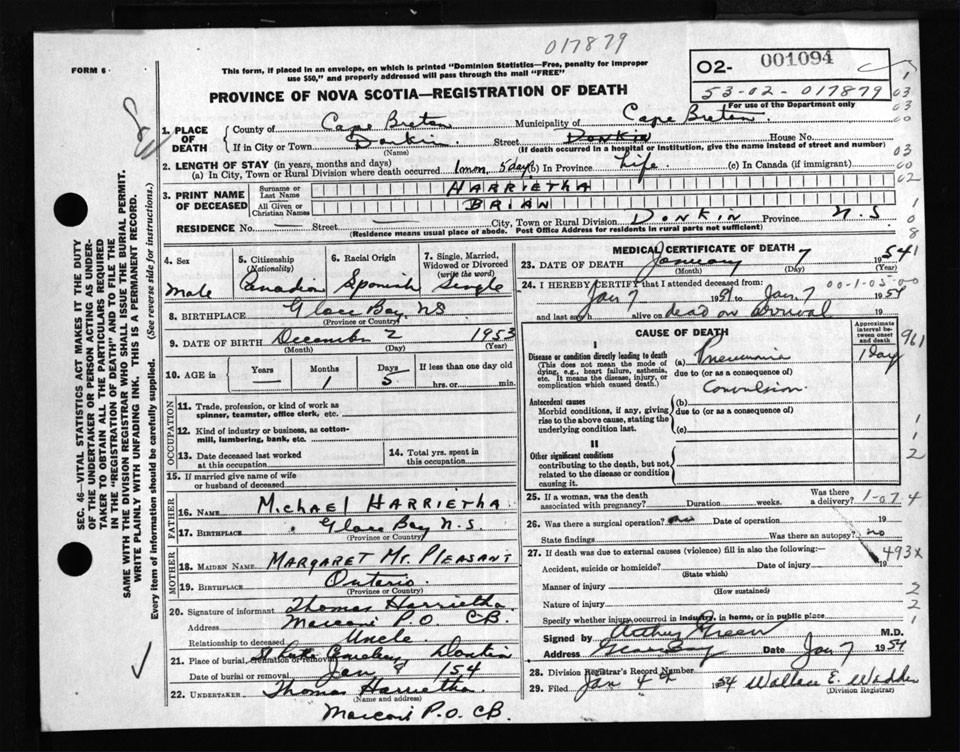 017879
FORM 6
This form, if placed in an envelope, on which is printed "Dominion Statistics—Free, penalty for improper
use $50," and properly addressed will pass through the mail "FREE"
02- 001094
53-02-017879
For use of the Department only
PROVINCE OF NOVA SCOTIA—REGISTRATION OF DEATH
1. PLACE OF DEATH
County of Cape Breton Municipality of Cape Breton
If in City or Town Donkin Street Donkin House No.
(Name) (If death occurred in a hospital or institution, give the name instead of street and number)
2. LENGTH OF STAY (in years, months and days)
(a) In City, Town or Rural Division where death occurred 1 mon, 5 days (b) In Province Life (c) In Canada (if immigrant)
3. PRINT NAME OF DECEASED
Surname or Last Name HARRIETHA
All Given or Christian Names BRIAN
RESIDENCE No. — Street — City, Town or Rural Division DONKIN Province N.S
(Residence means usual place of abode. Post Office Address for residents in rural parts not sufficient)
4. Sex Male
5. Citizenship (Nationality) Canadian
6. Racial Origin Spanish
7. Single, Married, Widowed or Divorced (write the word) Single
8. BIRTHPLACE Glace Bay, NS
(Province or Country)
9. DATE OF BIRTH December 2 1953
(Month) (Day) (Year)
10. AGE in Years — Months 1 Days 5 If less than one day old hrs. or min.
OCCUPATION
11. Trade, profession, or kind of work as
spinner, teamster, office clerk, etc.
12. Kind of industry or business, as cotton-
mill, lumbering, bank, etc.
13. Date deceased last worked
at this occupation
14. Total yrs. spent in
this occupation
15. If married give name of wife
or husband of deceased
FATHER
16. NAME Michael HARRIETHA
17. BIRTHPLACE Glace Bay N.S.
(Province or Country)
MOTHER
18. MAIDEN NAME MARGARET Mt. PLEASANT
19. BIRTHPLACE Ontario.
(Province or Country)
20. Signature of informant Thomas Harrietha
Address Marconi P.O. CB.
Relationship to deceased Uncle
21. Place of burial, cremation or removal Donkin
Date of burial or removal Jan 1954
22. UNDERTAKER Thomas Harrietha
(Name and address)
Marconi P.O. CB.
MEDICAL CERTIFICATE OF DEATH
23. DATE OF DEATH January 7 1954
(Month) (Day) (Year)
24. I HEREBY CERTIFY that I attended deceased from:
Jan 7 to Jan. 7 1954
00-1-05-00
and last saw h alive on dead on arrival 19
CAUSE OF DEATH
Approximate interval between onset and death
I
Disease or condition directly leading to death
(This does not mean the mode of dying, e.g., heart failure, asthenia, etc. It means the disease, injury, or complication which caused death.)
(a) Pneumonia 1 Day
due to (or as a consequence of)
Convulsion
Antecedent causes
Morbid conditions, if any, giving rise to the above cause, stating the underlying condition last.
(b)
due to (or as a consequence of)
(c)
II
Other significant conditions
contributing to the death, but not related to the disease or condition causing it.
25. If a woman, was the death
associated with pregnancy? Duration weeks. Was there a delivery?
1-07 4
26. Was there a surgical operation? Date of operation 19
State findings Was there an autopsy? no
27. If death was due to external causes (violence) fill in also the following:—
493x
Accident, suicide or homicide? Date of injury 19
(State which)
Manner of injury
(How sustained)
Nature of injury
Specify whether injury occurred in industry, in home, or in public place
Signed by Arthur Green M.D.
Address Glace Bay Date Jan 7 1954
28. Division Registrar's Record Number
29. Filed Jan 1954 Wallace E. Wadden
(Division Registrar)
SEC. 46—VITAL STATISTICS ACT MAKES IT THE DUTY
OF THE UNDERTAKER OR PERSON ACTING AS UNDER-
TAKER TO OBTAIN ALL THE PARTICULARS REQUIRED
IN THE "REGISTRATION OF DEATH" AND TO FILE THE
SAME WITH THE DIVISION REGISTRAR WHO SHALL ISSUE THE BURIAL PERMIT.
WRITE PLAINLY WITH UNFADING INK. THIS IS A PERMANENT RECORD.
Every item of information should be carefully supplied. (See reverse side for instructions.)
1
03
03
60
03
60
02
1
0
8
1
961
1
1
2
2
2
1